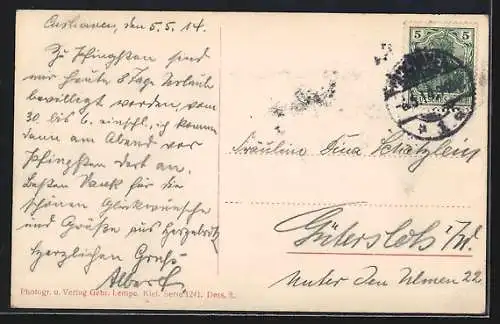 Cuxhaven, den 5.5.14.
Zu Pfingsten sind
mir heute 8 Tage Urlaub
bewilligt worden, vom
30. bis 6. einschl., ich komme
dann am Abend vor
Pfingsten dort an.
Besten Dank für die
schönen Glückwünsche
und Grüße aus
Herzlichen Gruß
Albert.
Photogr. u. Verlag Gebr. Lempe, Kiel. Serie 1241. Dess. 2.
5 5
Fräulein Tina
Gütersloh i/W.
Unter den Ulmen 22